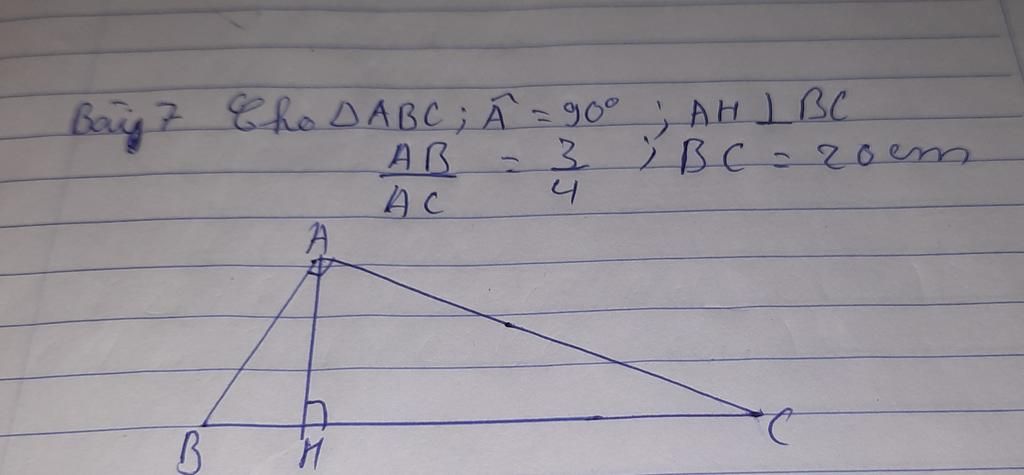 Bài 7 Cho △ABC; Â = 90°; AH ⊥ BC
AB/AC = 3/4; BC = 20cm
A
B H C